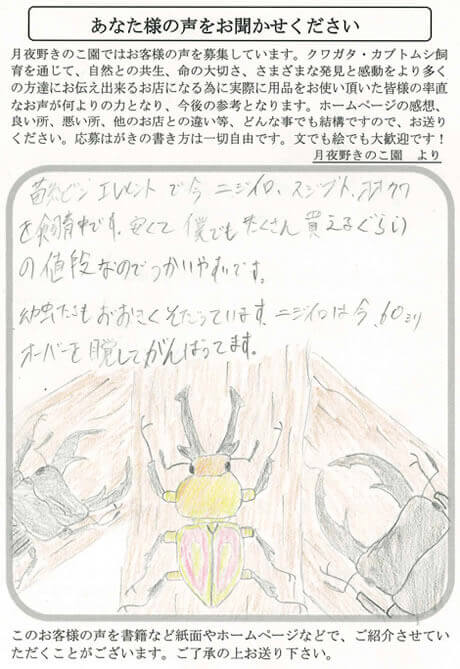 あなた様の声をお聞かせください
月夜野きのこ園ではお客様の声を募集しています。クワガタ・カブトムシ飼
育を通じて、自然との共生、命の大切さ、さまざまな発見と感動をより多く
の方達にお伝え出来るお店になる為に実際に用品をお使い頂いた皆様の率直
なお声が何よりの力となり、今後の参考となります。ホームページの感想、
良い所、悪い所、他のお店との違い等、どんな事でも結構ですので、お送り
ください。応募はがきの書き方は一切自由です。文でも絵でも大歓迎です！
月夜野きのこ園　より
菌糸ビン エレメント で今 ニジイロ、スジブト、オオクワ
を飼育中です。安くて 僕でも たくさん 買えるぐらい
の値段なのでつかいやすいです。
幼虫たちも おおきく そだっています。ニジイロは今、60ミリ
オーバーを目指してがんばってます。
このお客様の声を書籍など紙面やホームページなどで、ご紹介させてい
ただくことがございます。ご了承の上お送り下さい。